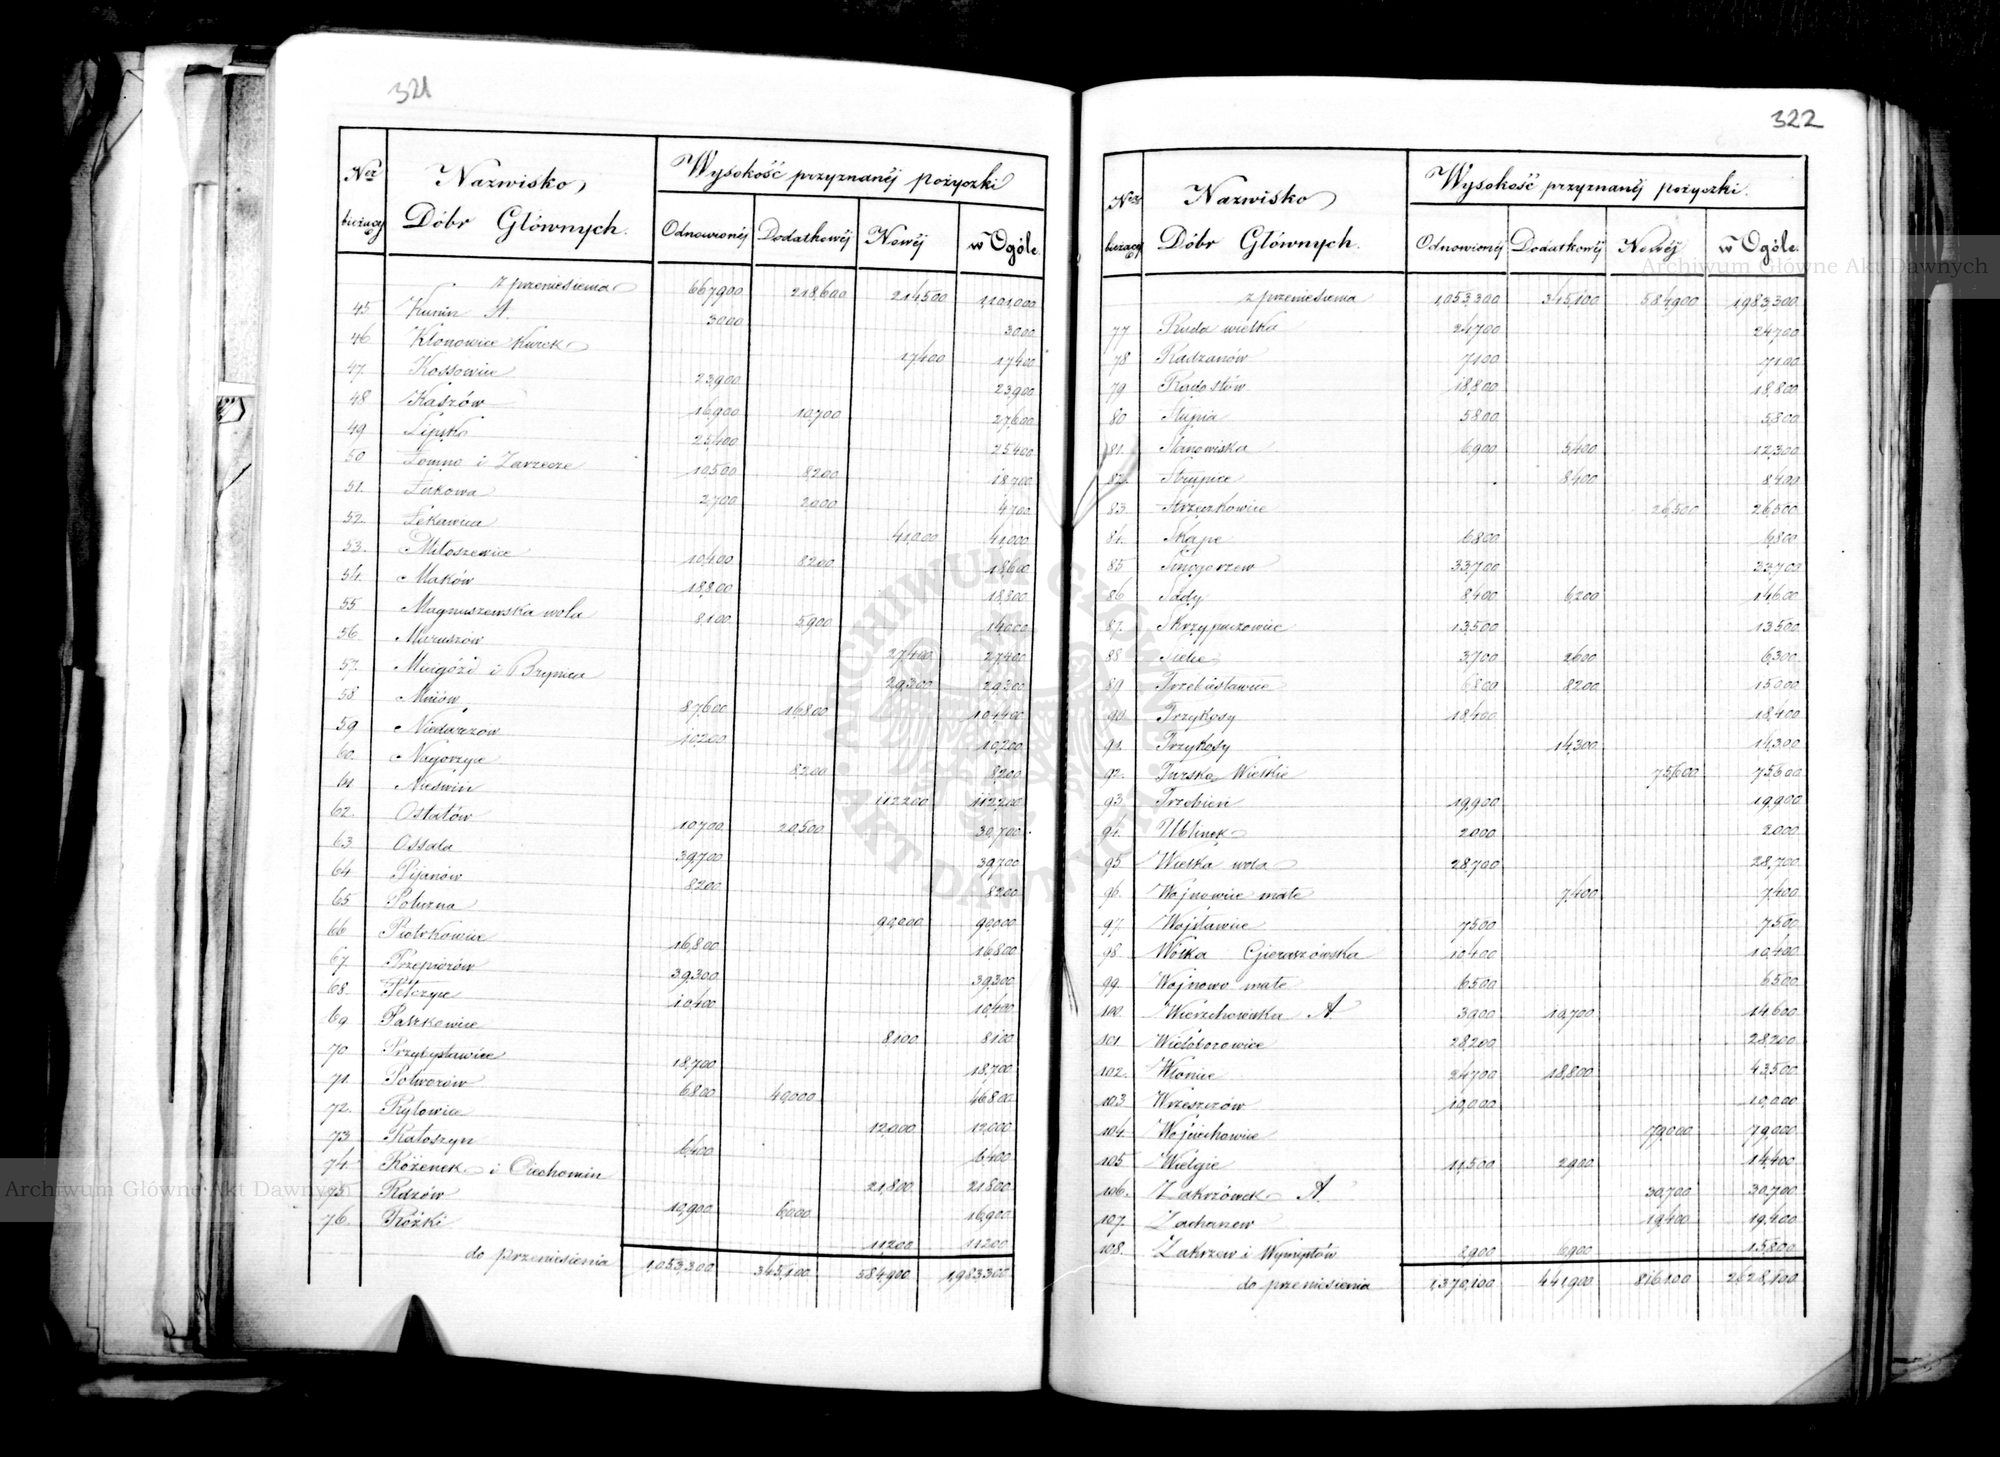 321
Nor bieżący
Nazwisko Dóbr Głównych.
Wysokość przyznanéj pożyczki
Odnowionéj Dodatkowéj Nowéj w Ogóle.
z przeniesienia 667,900 218,600 214,500 1,101,000
45 Kunin A. 3000 3000
46 Klonowiec Kurek 17,400 17,400
47 Kossowice 23,900 23,900
48 Kaszów 16,900 10,700 27,600
49 Lipsko 25,400 25,400
50 Łomno i Zarzecze 10,500 8,200 18,700
51. Łukowa 2,700 2,000 4,700
52 Łękawica 41,000 41,000
53. Miłoszowice 10,400 8200 18,600
54. Maków 18,800 18,800
55 Magnuszewska wola 8,100 5,900 14,000
56 Maruszów 27,400 27,400
57. Mnigóżd i Brynica 29,300 29,300
58 Mniów 87,600 16,800 104,400
59 Niedarczów 10,200 10,200
60. Nagorzyce 8,200 8,200
61 Nieświn 112,200 112,200
62. Ostałów 10,700 20,500 30,700
63 Ossala 39,700 39,700
64 Pijanów 8200 8200
65 Poturna 90,000 90,000
66 Piotrkowice 16,800 16,800
67. Przepiorów 39,300 39,300
68 Pełczyce 10,400 10,400
69 Paszkowice 8,100 8,100
70 Przybysławice 18,700 18,700
71. Potworów 6,800 40,000 46,800
72. Ryłowice 12,000 12,000
73. Rałoszyn 6,400 6,400
74. Różenek i Ciechomin 21,800 21,800
75. Rdzów 10,900 6,000 16,900
76. Rożki 11,200 11,200
do przeniesienia 1,053,300 345,100 584,900 1,983,300
322
Nor bieżący
Nazwisko Dóbr Głównych.
Wysokość przyznanéj pożyczki.
Odnowionéj Dodatkowéj Nowéj w Ogóle.
z przeniesienia 1,053,300 345,100 584,900 1,983,300
77 Ruda wielka 24,700 24,700
78 Radzanów 7,100 7,100
79 Radostów 18,800 18,800
80 Słupia 5,800 5,800
81. Stanowiska 6,900 5,400 12,300
82. Strupice 8,400 8,400
83 Strzeczkowice 26,500 26,500
84. Skąpe 6,800 6,800
85 Smogorzew 33,700 33,700
86 Sady 8,400 6,200 14,600
87. Skrzypaczowice 13,500 13,500
88 3,700 2600 6,300
89. Trzebiesławice 6,800 8200 15,000
90. Trzykosy 18,400 18,400
91. Trzykosy 14,300 14,300
92. Tursko Wielkie 75,600 75,600
93. Trzebień 19,900 19,900
94. Ublinek 2,000 2,000
95 Wielka wola 28,700 28,700
96. Wojnowice małe 7,400 7,400
97. Wojsławice 7,500 7,500
98. Wólka Gieraszówska 10,400 10,400
99. Wojnowo małe 6500 6500
100. Wierzchowiska A. 3,900 10,700 14,600
101. Wieloborowice 28,200 28,200
102. Włonice 24,700 18,800 43,500
103 Wrzeszczów 10,000 10,000
104. Wojciechowice 79,000 79,000
105 Wielgie 11,500 2,900 14,400
106. Zakrzówek A. 30,700 30,700
107. Zacharzew 19,400 19,400
108. Zakrzew i Wymysłów 8,900 6,900 15,800
do przeniesienia 1,370,100 441,900 816,100 2,628,100
Archiwum Główne Akt Dawnych
Archiwum Główne Akt Dawnych
ARCHIWUM GŁÓWNE AKT DAWNYCH